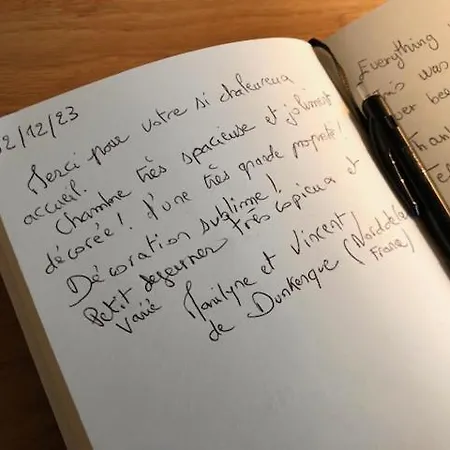 02/12/23
Merci pour votre si chaleureux
accueil.
Chambre très spacieuse et joliment
décorée! d'une très grande propreté!
Décoration sublime!
Petit dejeuner très copieux et
varié
Marilyne et Vincent
de Dunkerque (Nord de la
France)
Everything
This was
ver bee
Thank